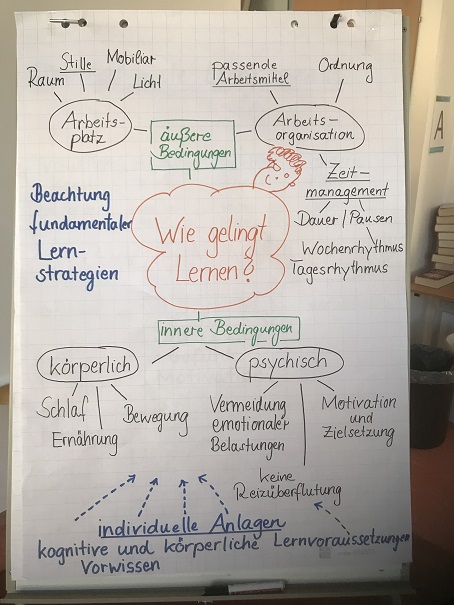 Raum
Stille
Mobiliar
Licht
Arbeits-
platz
äußere
Bedingungen
passende
Arbeitsmittel
Ordnung
Arbeits-
organisation
Zeit-
management
Dauer / Pausen
Wochenrhythmus
Tagesrhythmus
Beachtung
fundamentaler
Lern-
strategien
Wie gelingt
Lernen?
innere Bedingungen
körperlich
Schlaf
Ernährung
Bewegung
psychisch
Vermeidung
emotionaler
Belastungen
keine
Reizüberflutung
Motivation
und
Zielsetzung
individuelle Anlagen
kognitive und körperliche Lernvoraussetzungen
Vorwissen
A